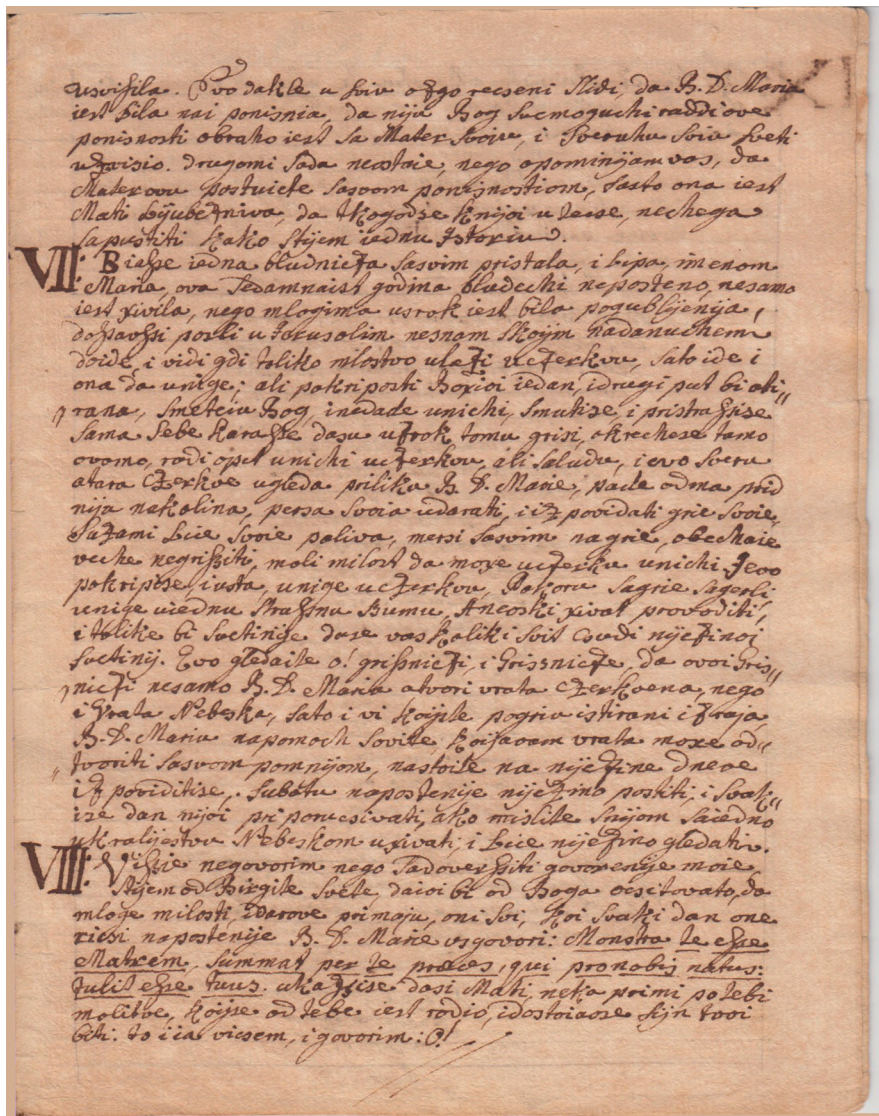 usvisila. Evo dakle u sviu ozgo recseni slidi, da B. D. Maria
iest bila nai ponisnia, da niju Bog svemoguchi raddi ove
ponisnosti obraho iest sa Mater svoju, i sveruhu sviu sveti
uzvisio. Drugomi sada neostaie, nego opominijam vas, da
Mater ovu postuiete sasvom ponisnostiom, sasto ona iest
Mati Lijubezniva, da tkogodse knijoi utecse, nechega
sapustiti kako stijem iednu Istoriu.
VII: Biasse iedna bludnicza sasvim pristala, i lipa, imenom
Maria, ova sedamnaist godina bludechi neposteno, nesamo
iest xivila, nego mlogima usrok iest bila pogublijenija,
dossavssi posli u Jerusolim nesnam skoijm nadanuchem
doide, i vidi gdi toliko mlostvo ulazi uczerkvu, sato ide i
ona da unige; ali pokriposti Boxioi iedan, idrugi put bi oti"
"rana, smeteiu Bog, inedade unichi, smutise, i pristrassise
sama sebe karasse dasu uzrok tomu grisi, okrechese tamo
ovamo, radi opet unichi uczerkvu, ali saludu, i evo sveru
otara Czerkve ugleda priliku B. D. Marie, pade odma prid
nija nakolina, persa svoia udarati, i iz povidati grie svoie,
suzami Lice svoie poliva, mersi sasvim na grie, obechaie
veche negrissiti, moli milost da moxe uczerku unichi Jevo
pokripise iusta, unige uczerkvu, Pokoru sagrie sagerli
unige uiednu strassnu sumu, Angoski xivot provoditi,
i tolike bi svetinije dase vas koliki svit csudi nijezinoi
svetinij. Evo gledaite o! grissniczi, i Grissnicze, da ovoi Gris"
"niczi nesamo B. D. Maria otvori vrata czerkvena, nego
i Vrata Nebeska, sato i vi koijste pogriu istirani iz raja,
B. D. Mariu napomoch sovite koisavam vrata moxe od"
"tvoriti sasvom pomnijom, nastoite na nijezine dneve
iz poviditise, subotu napostenije nijezino postiti, i svak"
ise dan nijoi pri porucsivati, ako mislite snijom saiedno
ukralijestvu Nebeskom uxivati, i Lice nijezino gledati.
VIII: Vissie negovorim nego sadoverssiti govorenije moie
stijem od Birgite svete daioi bi od Boga ocsitovato, da
mloge milosti, idarove primaju, oni svi, koi svaki dan one
ricsi napostenije B. D. Marie usgovori: Monstra te esse
Matrem, summat per te preces, qui pro nobis natus:
tulit esse tuus. ukazsise dasi Mati, neka primi po tebi
molitve, koijse od tebe iest rodio, idostoiaose sijn tvoi
biti: to i ia vicsem, i govorim: O!